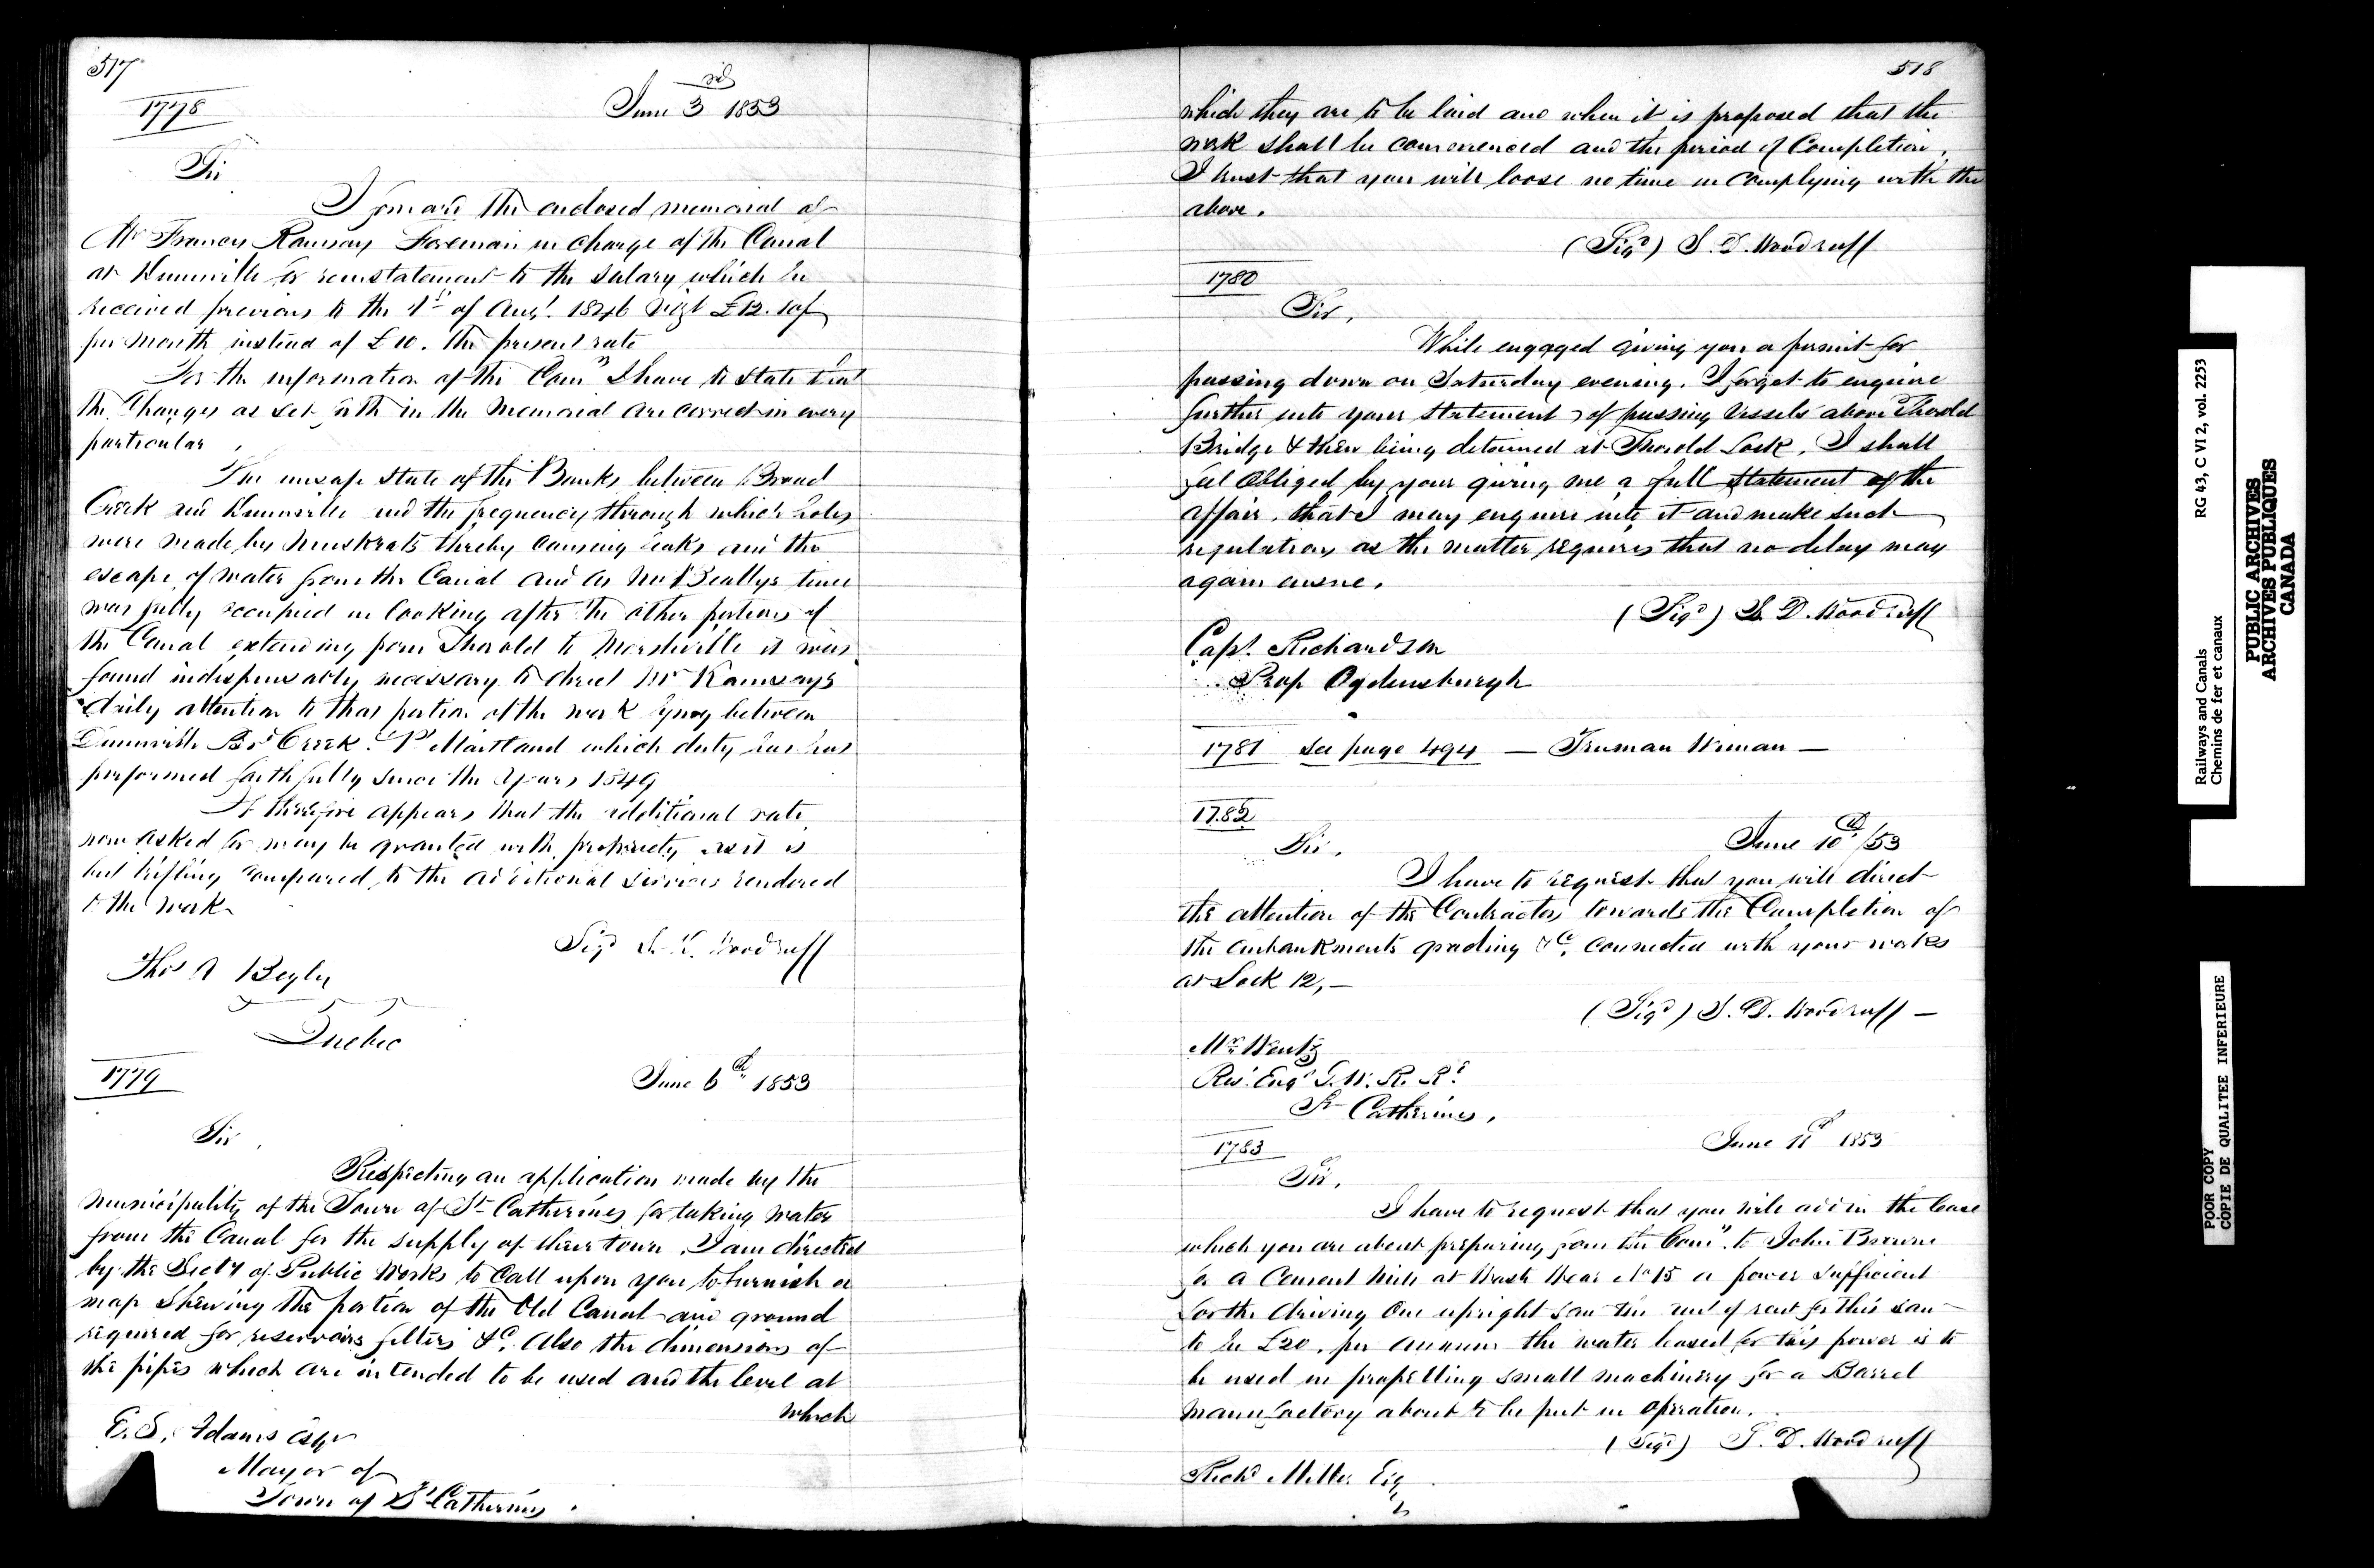 517
1778
June 3rd 1853
Sir
I forward the enclosed memorial of
Mr Francis Ramsay Foreman in charge of the Canal
at Dunnville for reinstatement to the salary which he
received previous to the 1st of Augt. 1846 vizt £12.10/
per month instead of £10. the present rate
For the information of the Comrs I have to state that
the Changes as set forth in the Memorial are correct in every
particular
The unsafe state of the Banks between Broad
Creek and Dunnville and the frequency through which holes
were made by Muskrats thereby causing leaks and the
escape of water from the Canal and as Mr Beattys time
was fully occupied in looking after the other portions of
the Canal extending from Thorold to Marshville it was
found indispensably necessary to direct Mr Ramsays
daily attention to that portion of the work lying between
Dunnville Bd Creek. Pt Maitland which duty he has
performed faithfully since the years 1849
It therefore appears that the additional rate
now asked for may be granted with propriety as it is
but trifling compared to the additional services rendered
to the work
Sigd S. D. Woodruff
Thos A Begly
Quebec
1779
June 6th 1853
Sir
Respecting an application made by the
Municipality of the Town of St Catherines for taking water
from the Canal for the supply of their town, I am directed
by the Secty of Public Works to Call upon you to furnish a
map shewing the portion of the Old Canal and ground
required for reservoirs filters &c. Also the dimensions of
the pipes which are intended to be used and the level at
which
E. S. Adams Esqr
Mayor of
Town of St Catherines
518
which they are to be laid and when it is proposed that the
work shall be commenced and the period of Completion,
I trust that you will loose no time in Complying with the
above.
(Sigd) S. D. Woodruff
1780
Sir,
While engaged giving you a permit for
passing down on Saturday evening, I forgot to enquire
further into your statement of passing Vessels above Thorold
Bridge & then being detained at Thorold Lock, I shall
feel Obliged by your giving me a full statement of the
affair, that I may enquire into it and make such
regulations as the matter requires that no delay may
again ensue.
(Sigd) S. D. Woodruff
Capt. Richardson
Prop Ogdensburgh
1781 see page 494 — Truman Wiman —
1782
June 10th /53
Sir.
I have to request that you will direct
the attention of the Contractors towards the Completion of
the embankments grading &c. connected with your works
at Lock 12,—
(Sigd) S. D. Woodruff —
Mr. Wentz
Rest. Engr G. W. R. Rd.
St Catherines,
1783
June 11th 1853
Sir,
I have to request that you will add in the lease
which you are about preparing from the Comrs. to John Browne
for a Cement Mill at Waste Wear No 15 a power sufficient
for the driving One upright saw the rent for this saw
to be £20. per annum the water leased for this power is to
be used in propelling small machinery for a Barrel
Manufactory about to be put in operation.
(Sigd) S. D. Woodruff
Richd Miller Esq
Railways and Canals
Chemins de fer et canaux
RG 43, C VI 2, vol. 2253
PUBLIC ARCHIVES
ARCHIVES PUBLIQUES
CANADA
POOR COPY
COPIE DE QUALITEE INFERIEURE